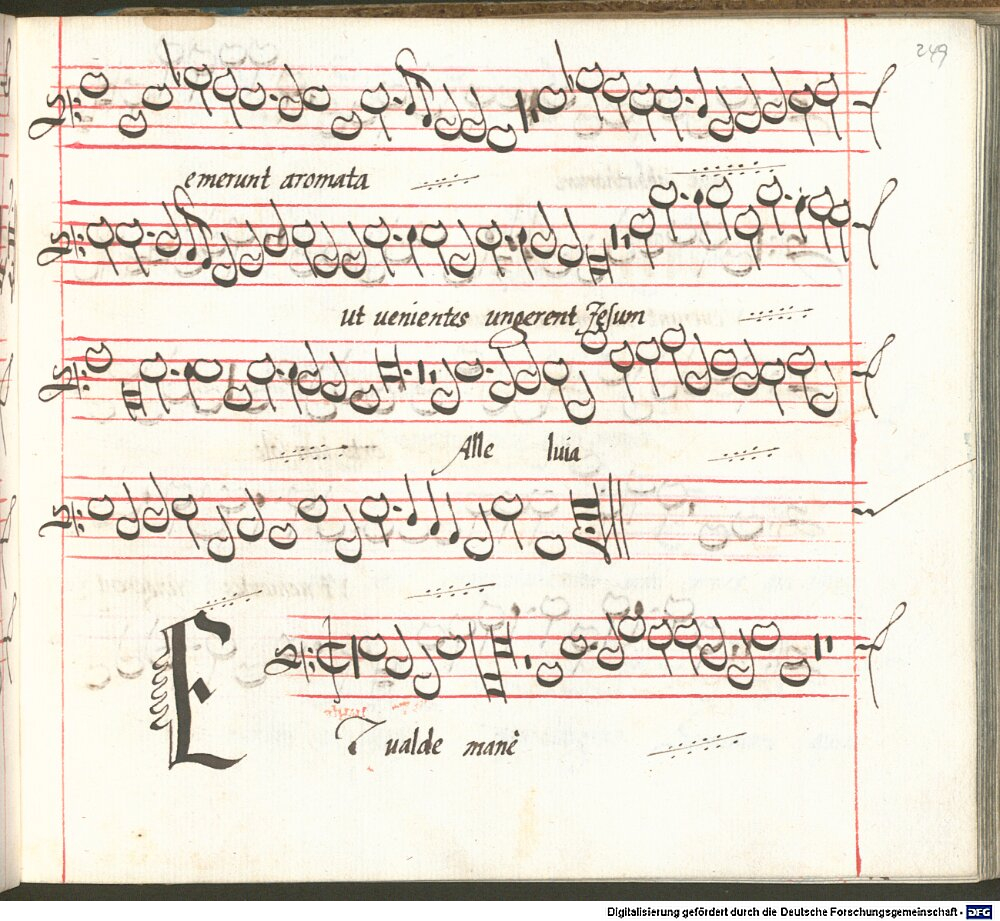 249
emerunt aromata
ut uenientes ungerent Jesum
Alle luia
ET ualde manè
Digitalisierung gefördert durch die Deutsche Forschungsgemeinschaft - DFG